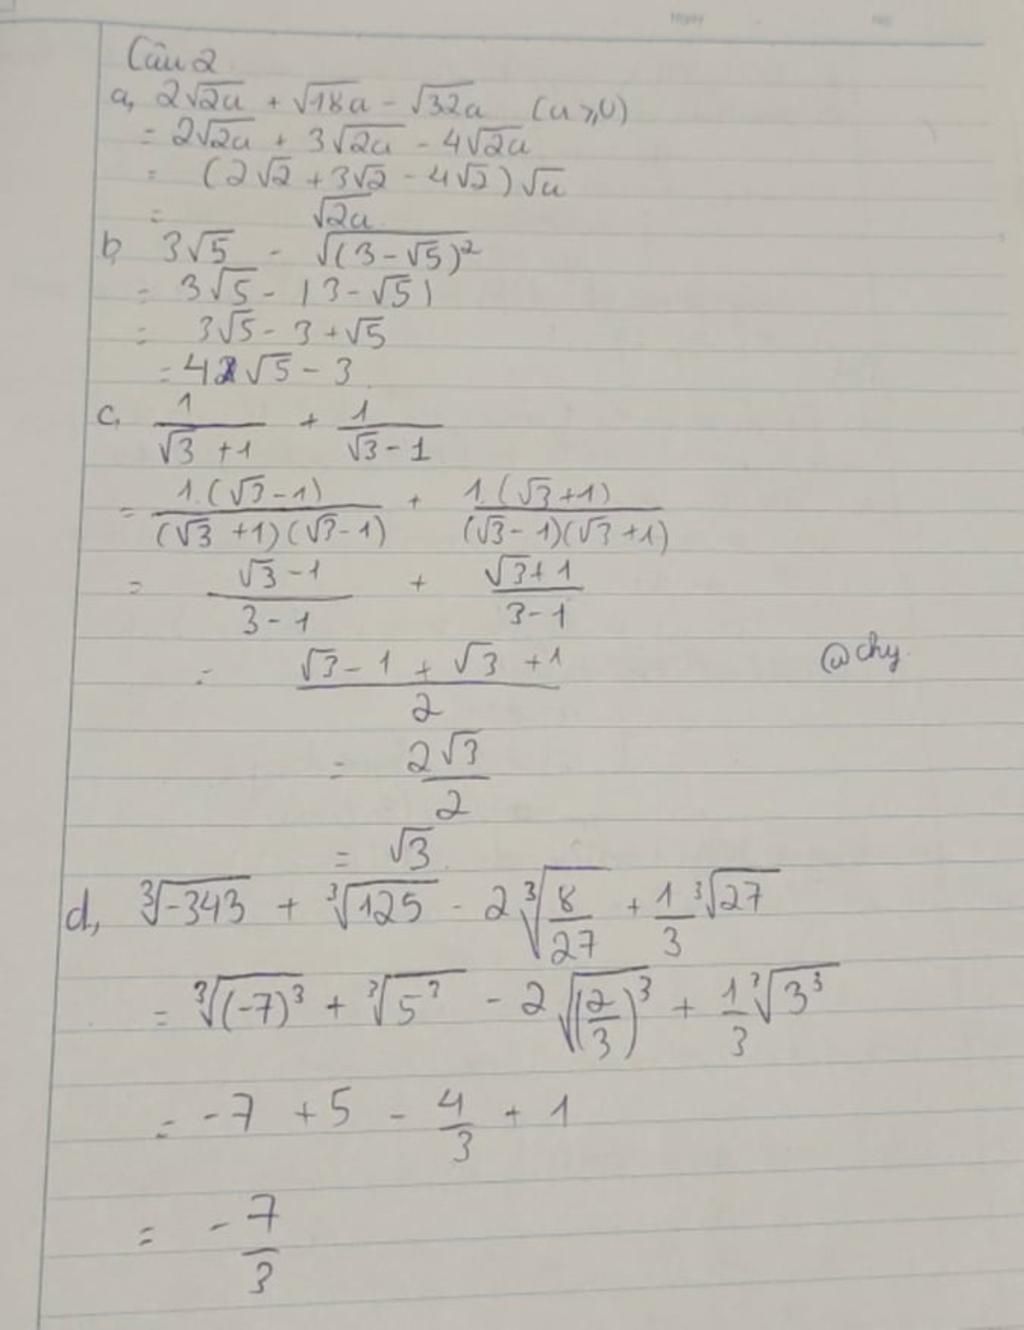 Câu 2
a, 2√2a + √18a - √32a (a ≥ 0)
= 2√2a + 3√2a - 4√2a
= (2√2 + 3√2 - 4√2)√a
= √2a
b, 3√5 - √(3-√5)²
= 3√5 - |3-√5|
= 3√5 - 3 + √5
= 4√5 - 3
c, 1/(√3 + 1) + 1/(√3 - 1)
= 1.(√3-1)/(√3 +1)(√3-1) + 1.(√3+1)/(√3-1)(√3+1)
= (√3-1)/(3-1) + (√3+1)/(3-1)
= (√3-1 + √3 +1)/2
@chy.
= 2√3/2
= √3
d, ∛-343 + ∛125 - 2∛(8/27) + 1/3 ∛27
= ∛(-7)³ + ∛5³ - 2√(2/3)³ + 1/3 ∛3³
= -7 + 5 - 4/3 + 1
= -7/3